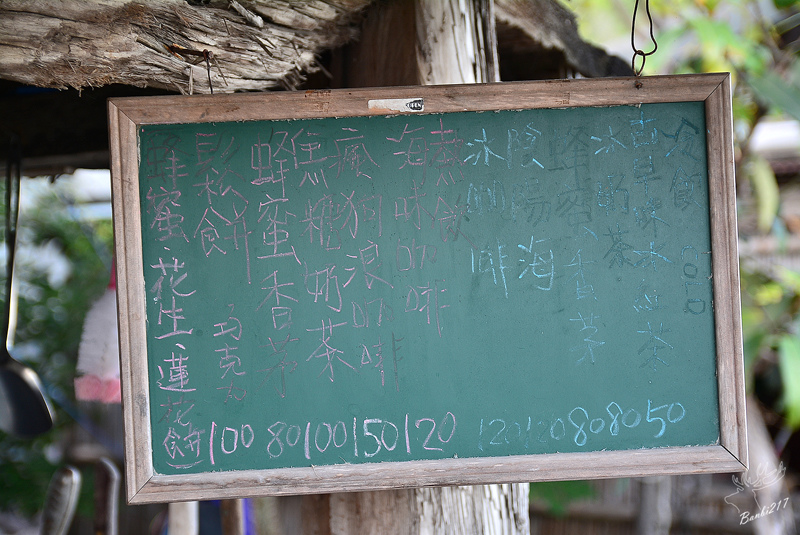 冷飲 COLD
古早味冰紅茶 50
冰奶茶 80
蜂蜜香茅 80
陰陽海 120
冰咖啡 120
熱飲
海味咖啡 120
瘋狗浪咖啡 150
焦糖奶茶 100
蜂蜜香茅 80
鬆餅 巧克力 100
蜂蜜、花生、蓮花餅
Banbi217